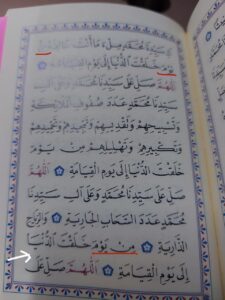 سَيِّدِنَا مُحَمَّدٍ مِلْءَ مَا أَنْتَ خَالِقُهُ مِنْ
يَوْمِ خَلَقْتَ الدُّنْيَا إِلَى يَوْمِ الْقِيَامَةِ
اللَّهُمَّ صَلِّ عَلَى سَيِّدِنَا مُحَمَّدٍ وَعَلَى آلِ
سَيِّدِنَا مُحَمَّدٍ عَدَدَ صُفُوفِ الْمَلَائِكَةِ
وَتَسْبِيحِهِمْ وَتَقْدِيسِهِمْ وَتَحْمِيدِهِمْ وَتَمْجِيدِهِمْ
وَتَكْبِيرِهِمْ وَتَهْلِيلِهِمْ مِنْ يَوْمِ
خَلَقْتَ الدُّنْيَا إِلَى يَوْمِ الْقِيَامَةِ اللَّهُمَّ
صَلِّ عَلَى سَيِّدِنَا مُحَمَّدٍ وَعَلَى آلِ سَيِّدِنَا
مُحَمَّدٍ عَدَدَ السَّحَابِ الْجَارِيَةِ وَالرِّيَاحِ
الذَّارِيَةِ مِنْ يَوْمِ خَلَقْتَ الدُّنْيَا
إِلَى يَوْمِ الْقِيَامَةِ اللَّهُمَّ صَلِّ عَلَى